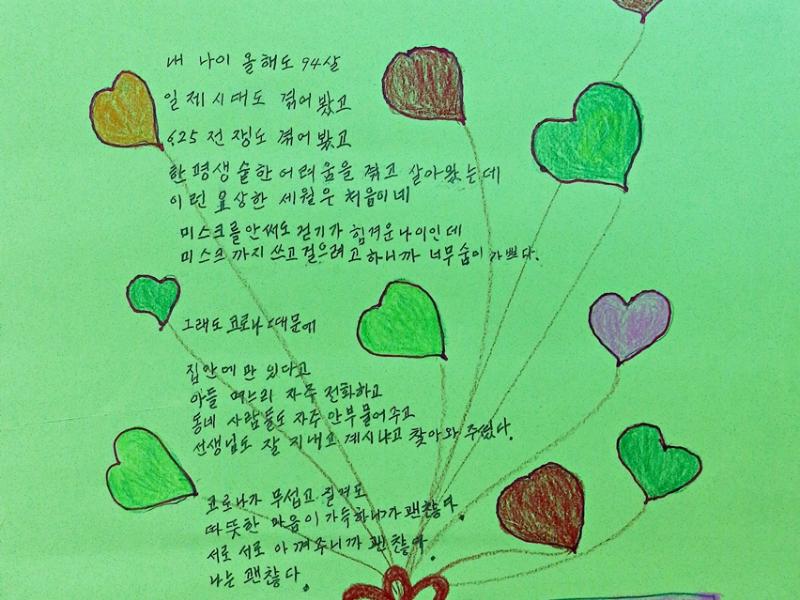 내 나이 올해도 94살
일제시대도 겪어 봤고
6.25 전쟁도 겪어 봤고
한평생 숱한 어려움을 겪고 살아왔는데
이런 요상한 세월은 처음이네
미스크를 안써도 걷기가 힘겨운 나이인데
미스크까지 쓰고 걸으려고 하니까 너무 숨이 가쁘다.
그래도 코로나 때문에
집안에만 있다고
아들 며느리 자주 전화하고
동네 사람들도 자주 안부 물어주고
선생님도 잘 지내고 계시냐고 찾아와 주셨다.
코로나가 무섭고 질겨도
따뜻한 마음이 가득하니까 괜찮다.
서로 서로 아껴주니까 괜찮다.
나는 괜찮다.